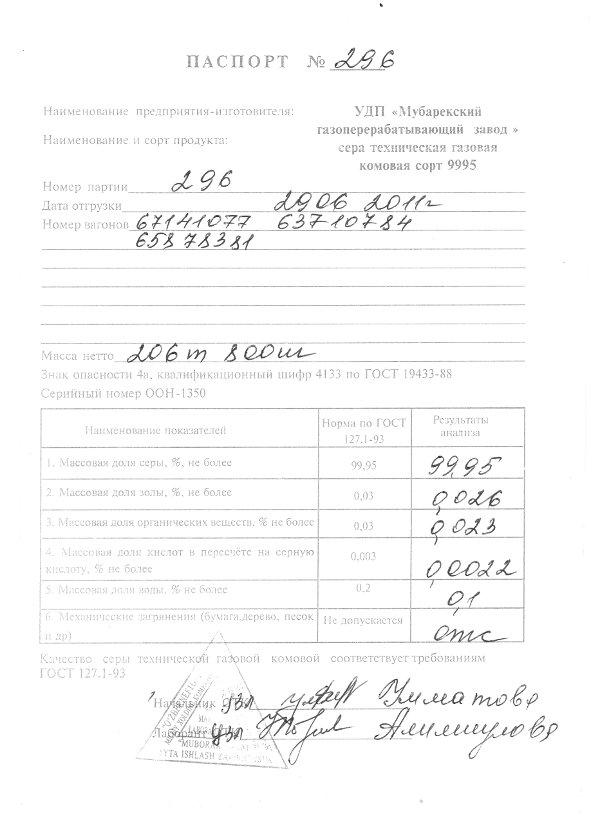 ПАСПОРТ № 296
Наименование предприятия-изготовителя: УДП «Мубарекский
газоперерабатывающий завод»
Наименование и сорт продукта: сера техническая газовая
комовая сорт 9995
Номер партии 296
Дата отгрузки 2906 2011г
Номер вагонов 67141077 63710784
65878381
Масса нетто 206т 800кг
Знак опасности 4а, квалификационный шифр 4133 по ГОСТ 19433-88
Серийный номер ООН-1350
Наименование показателей Норма по ГОСТ 127.1-93 Результаты анализа
1. Массовая доля серы, %, не более 99,95 99,95
2. Массовая доля золы, %, не более 0,03 0,026
3. Массовая доля органических веществ, % не более 0,03 0,023
4. Массовая доля кислот в пересчёте на серную
кислоту, % не более 0,003 0,0022
5. Массовая доля воды, % не более 0,2 0,1
6. Механические загрянения (бумага,дерево, песок
и др) Не допускается отс
Качество серы технической газовой комовой соответствует требованиям
ГОСТ 127.1-93
Начальник
Лаборант
MUBORAK
ISHLASH